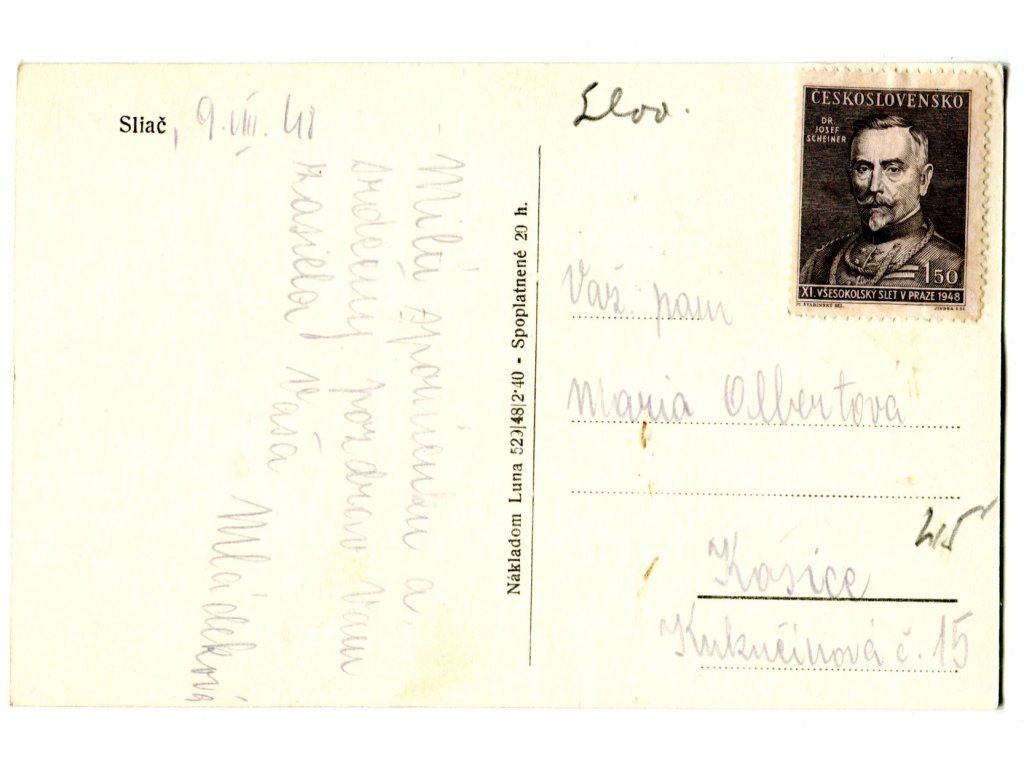 Sliač, 9. VIII. 48
Milú spomienku a
srdečný pozdrav Vám
zasiela Vaša
Mládeková
Nákladom Luna 529|48|2·40 - Spoplatnené 20 h.
Slov.
ČESKOSLOVENSKO
DR.
JOSEF
SCHEINER
1 50
XI. VŠESOKOLSKÝ SLET V PRAZE 1948
Váž. pani
Maria Olbertová
45
Košice
Kukučinová č. 15